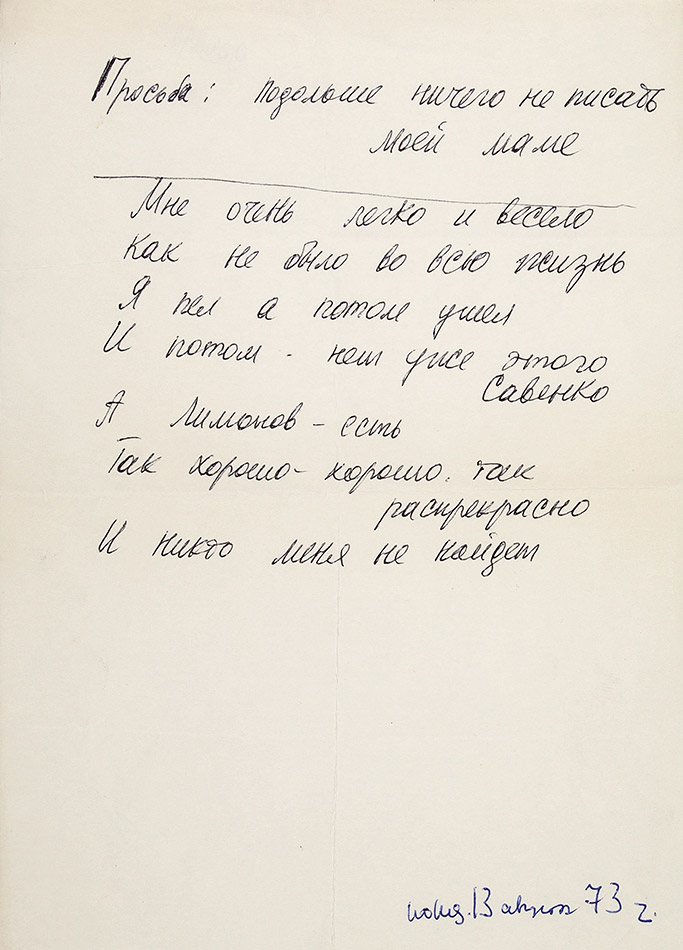 Просьба: подольше ничего не писать
моей маме
Мне очень легко и весело
Как не было во всю жизнь
Я пел а потом ушел
И потом - нет уже этого
Савенко
А Лимонов - есть
Так хорошо - хорошо. так
распрекрасно
И никто меня не найдет
понед. 13 августа 73 г.